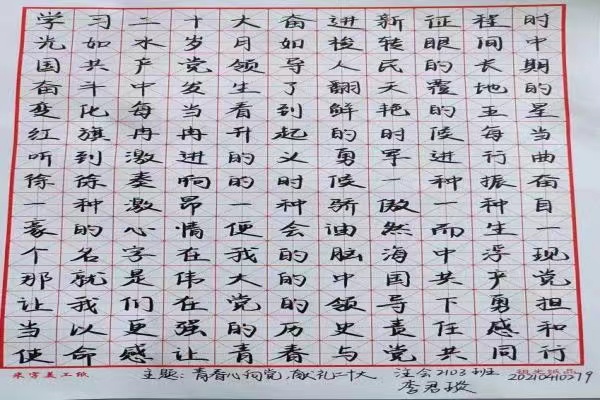 学习二十大奋进新征程时
光如水岁月如梭转眼间中
国共产党领导人民的长期
奋斗中发生了翻天覆地的
变化每当看到鲜艳的五星
红旗冉冉升起的时候每当
听到激进的义勇军进行曲
徐徐奏响的时候一种振奋
一种激昂一种骄傲一种自
豪的心情便会油然而生一
个名字在我的脑海中浮现
那就是伟大的中国共产党
让我们在党的领导下勇担
当以更强的历史责任感和
使命感让青春与党共同行
米字美工纸
主题:青春心向党,献礼二十大 注会2103班
李君 20210410219